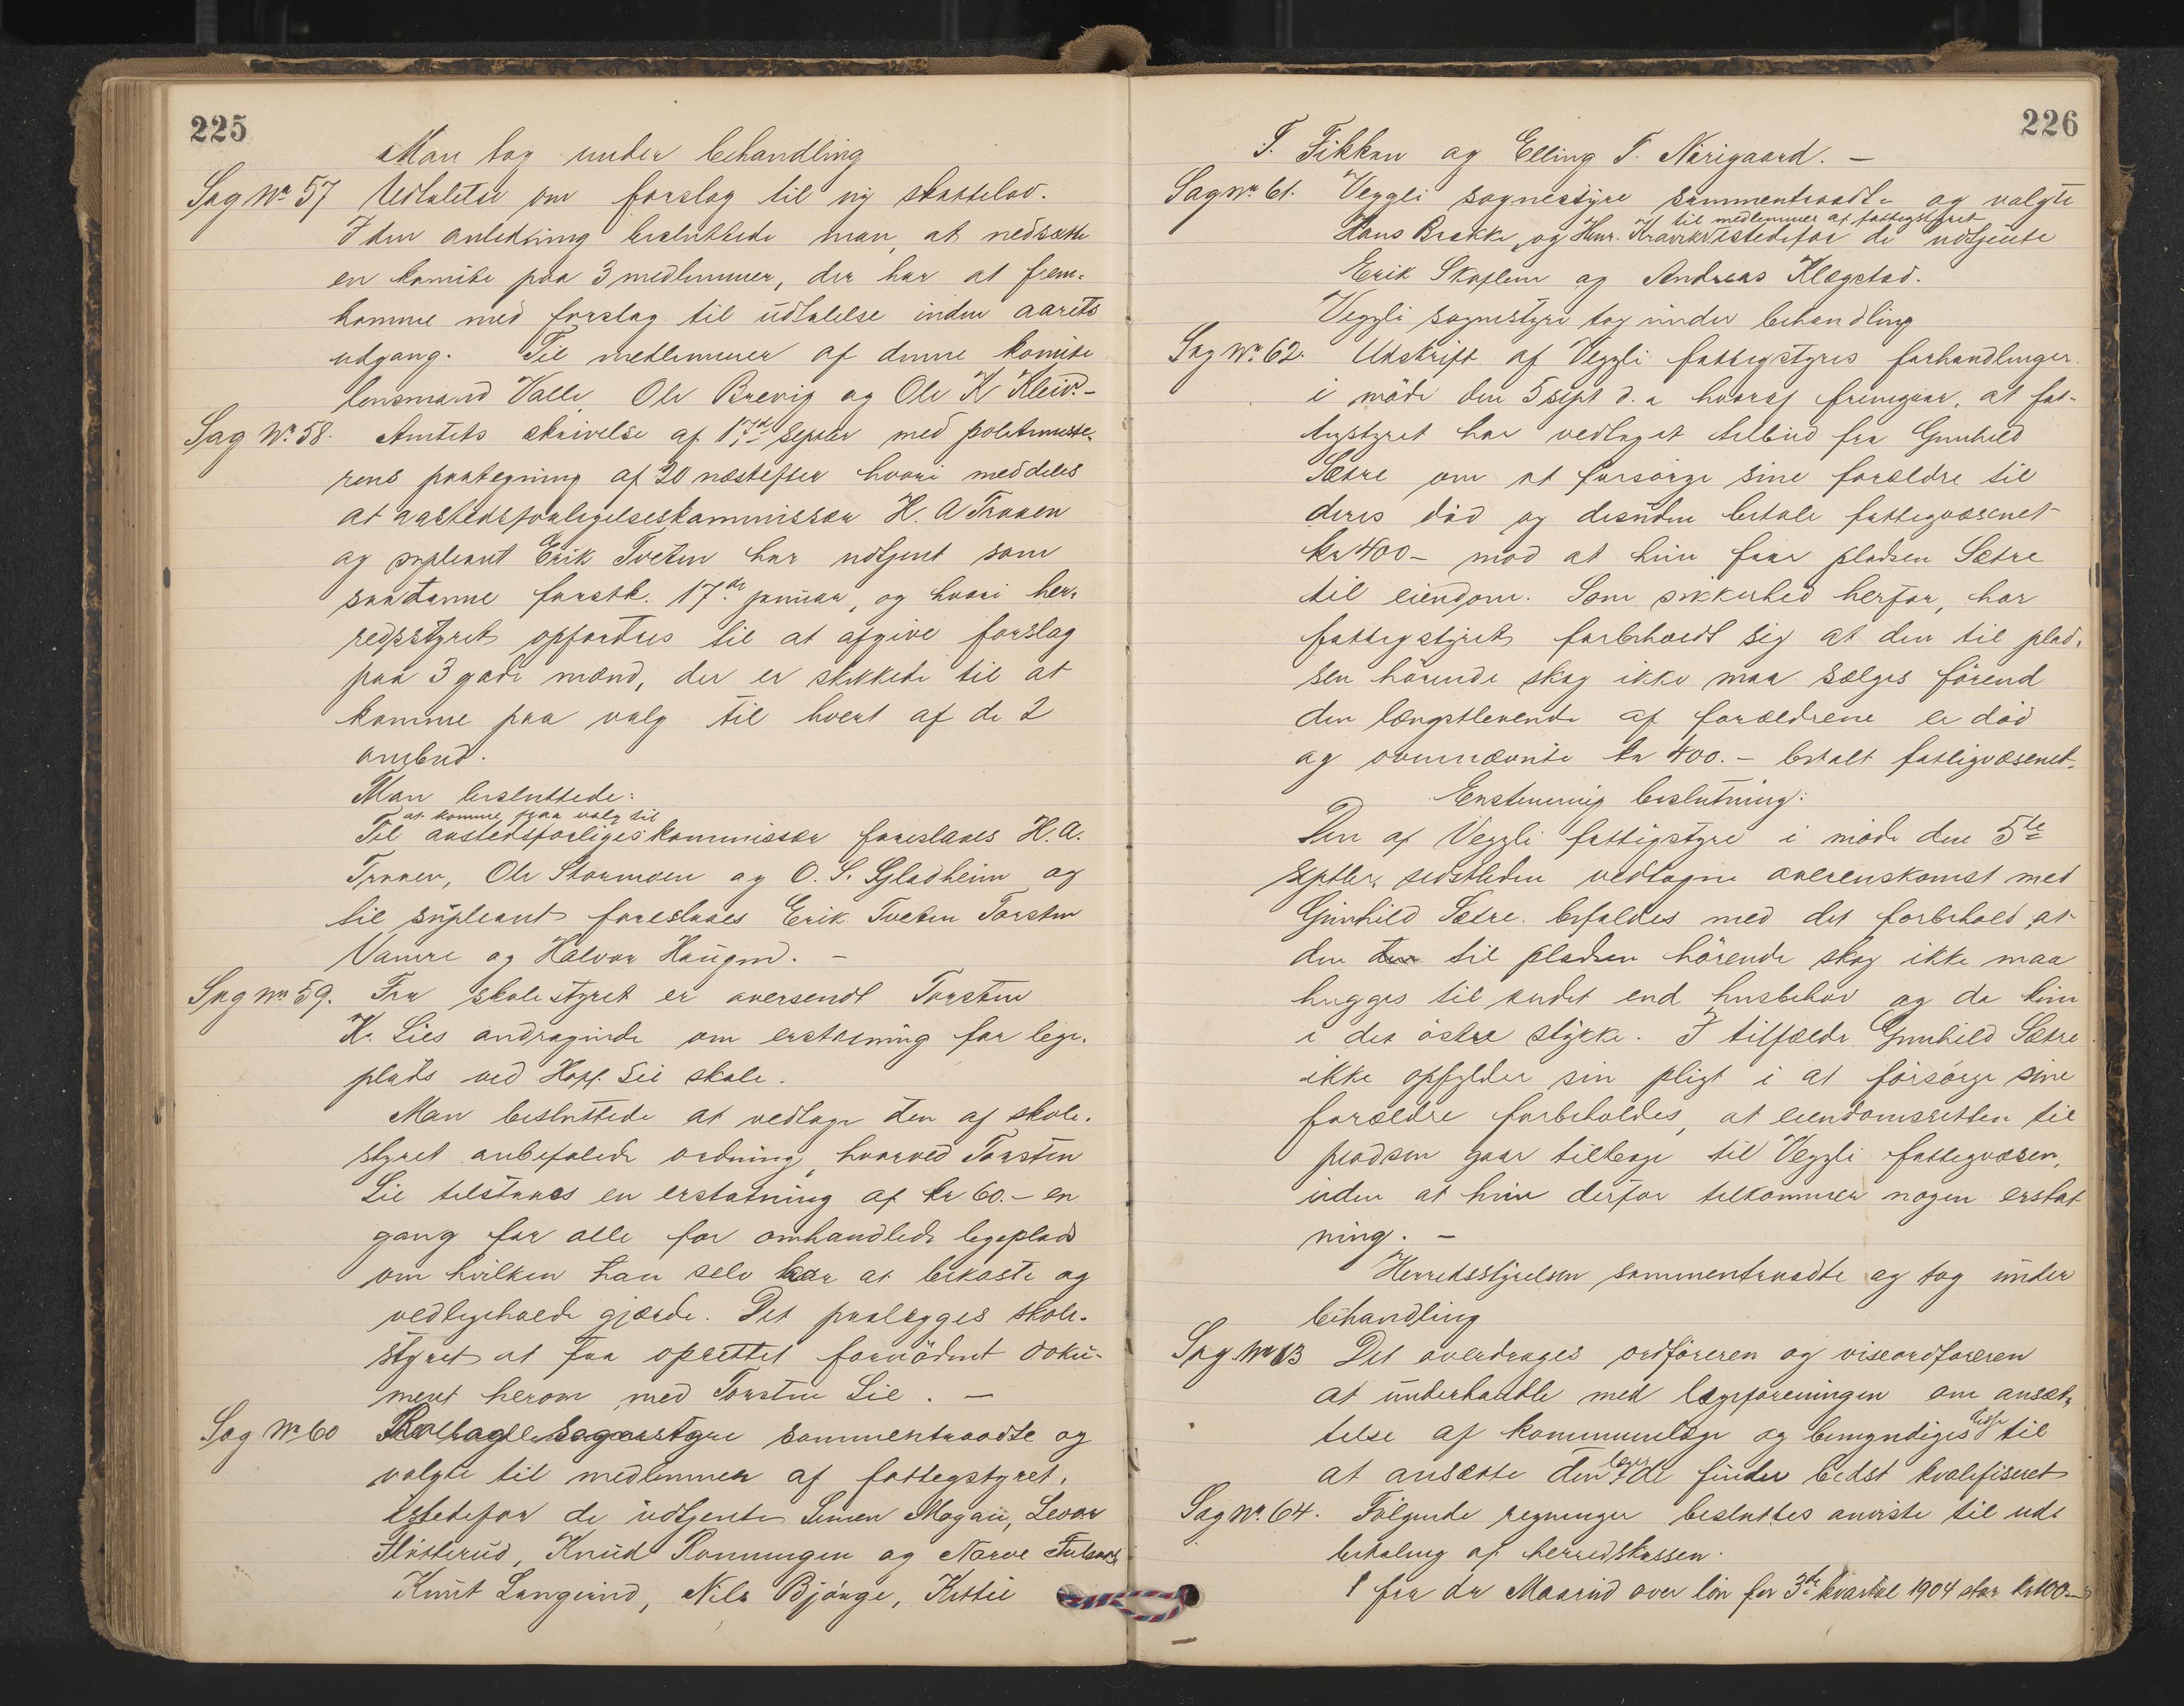 225
Man tog under behandling
Sag Nr 57 Udtalelse om forslag til ny skattelov.
I den anledning besluttede man at nedsætte
en komite paa 3 medlemmer, der har at frem-
komme med forslag til udtalelse inden aarets
udgang. Til medlemmer af denne komite
lensmand Valle, Ole Brevig og Ole K Kleiv. -
Sag Nr. 58. Amtets skrivelse af 17de septbr med politimeste-
rens paategning af 20 næstefter hvori meddeles
at aastedsforligelseskommissær H. A Traaen
og supleant Erik Tveten har udtjent som
saadanne førstk. 17de januar, og hvori her-
redsstyret opfordres til at afgive forslag
paa 3 gode mænd, der er skikkede til at
komme paa valg til hvert af de 2
ombud.
Man besluttede:
at komme paa valg til
Til aastedsforligeskommissær foreslaaes H. A.
Traaen, Ole Stormoen og O. S. Gladheim og
til supleant foreslaaes Erik Tveten Torsten
Vamre og Halvor Haugen. -
Sag nr 59. Fra skolestyret er oversendt Torsten
K. Lies andragende om erstatning for lege-
plads ved Hopf. Lie skole.
Man besluttede at vedtage den af skole-
styret anbefalede ordning, hvorved Torsten
Lie tilstaaes en erstatning af kr 60.- en
gang for alle for omhandlede legeplads
om hvilken han selv har at bekoste og
vedligeholde gjærde. Det paalægges skole-
styret at faa oprettet fornødent doku-
ment herom med Torsten Lie. -
Sag Nr 60 Rollag sognestyre sammentraadte og
valgte til medlemmer af fattigstyret
istedefor de udtjente Simen Mogan, Levor
Flåtterud, Knud Ronningen og Narve
Knut Langerud, Nils Bjørge, Kittil
226
T. Fikkan og Elling T. Nørigaard. -
Sag nr. 61. Veggli sognestyre sammentraadte og valgte
til medlemmer af fattigstyret
Hans Brekke og Henr. Kravik istedefor de udtjente
Erik Skaflem og Andreas Klegstad.
Veggli sognestyre tog under behandling
Sag Nr. 62. Udskrift af Veggli fattigstyres forhandlinger
i møde den 5 sept d. a hvoraf fremgaar, at fat-
tigstyret har vedtaget tilbud fra Gunhild
Sætre om at forsørge sine forældre til
deres død og desuden betale fattigvæsenet
kr 400- mod at hun faar pladsen Sætre
til eiendom. Som sikkerhed herfor, har
fattigstyret forbeholdt sig at den til plad-
sen hørende skog ikke maa sælges førend
den længstlevende af forældrene er død
og ovennævnte kr 400.- betalt fattigvæsenet.
Enstemmig beslutning:
Den af Veggli fattigstyre i møde den 5te
septbr. sidstleden vedtagne overenskomst med
Gunhild Sætre befaldes med det forbehold, at
den den til pladsen hørende skog ikke maa
hugges til andet end husbehov og da kun
i det østre stykke. I tilfælde Gunhild Sætre
ikke opfylder sin pligt i at forsørge sine
forældre forbeholdes, at eiendomsretten til
pladsen gaar tilbage til Veggli fattigvæsen,
uden at hun derfor tilkommer nogen erstat
ning. -
Herredsstyrelsen sammentraadte og tog under
behandling
Sag Nr 63 Det overdrages ordføreren og viseordføreren
at underhandle med lægeforeningen om ansæt-
telse af kommunelæge og bemyndiges til
at ansætte den de finder bedst kvalifiseret
Sag Nr. 64. Følgende regninger besluttes anviste til ud-
betaling af herredskassen.
1 fra dr Maarud over løn for 3de kvartal 1904 stor kr 100.-